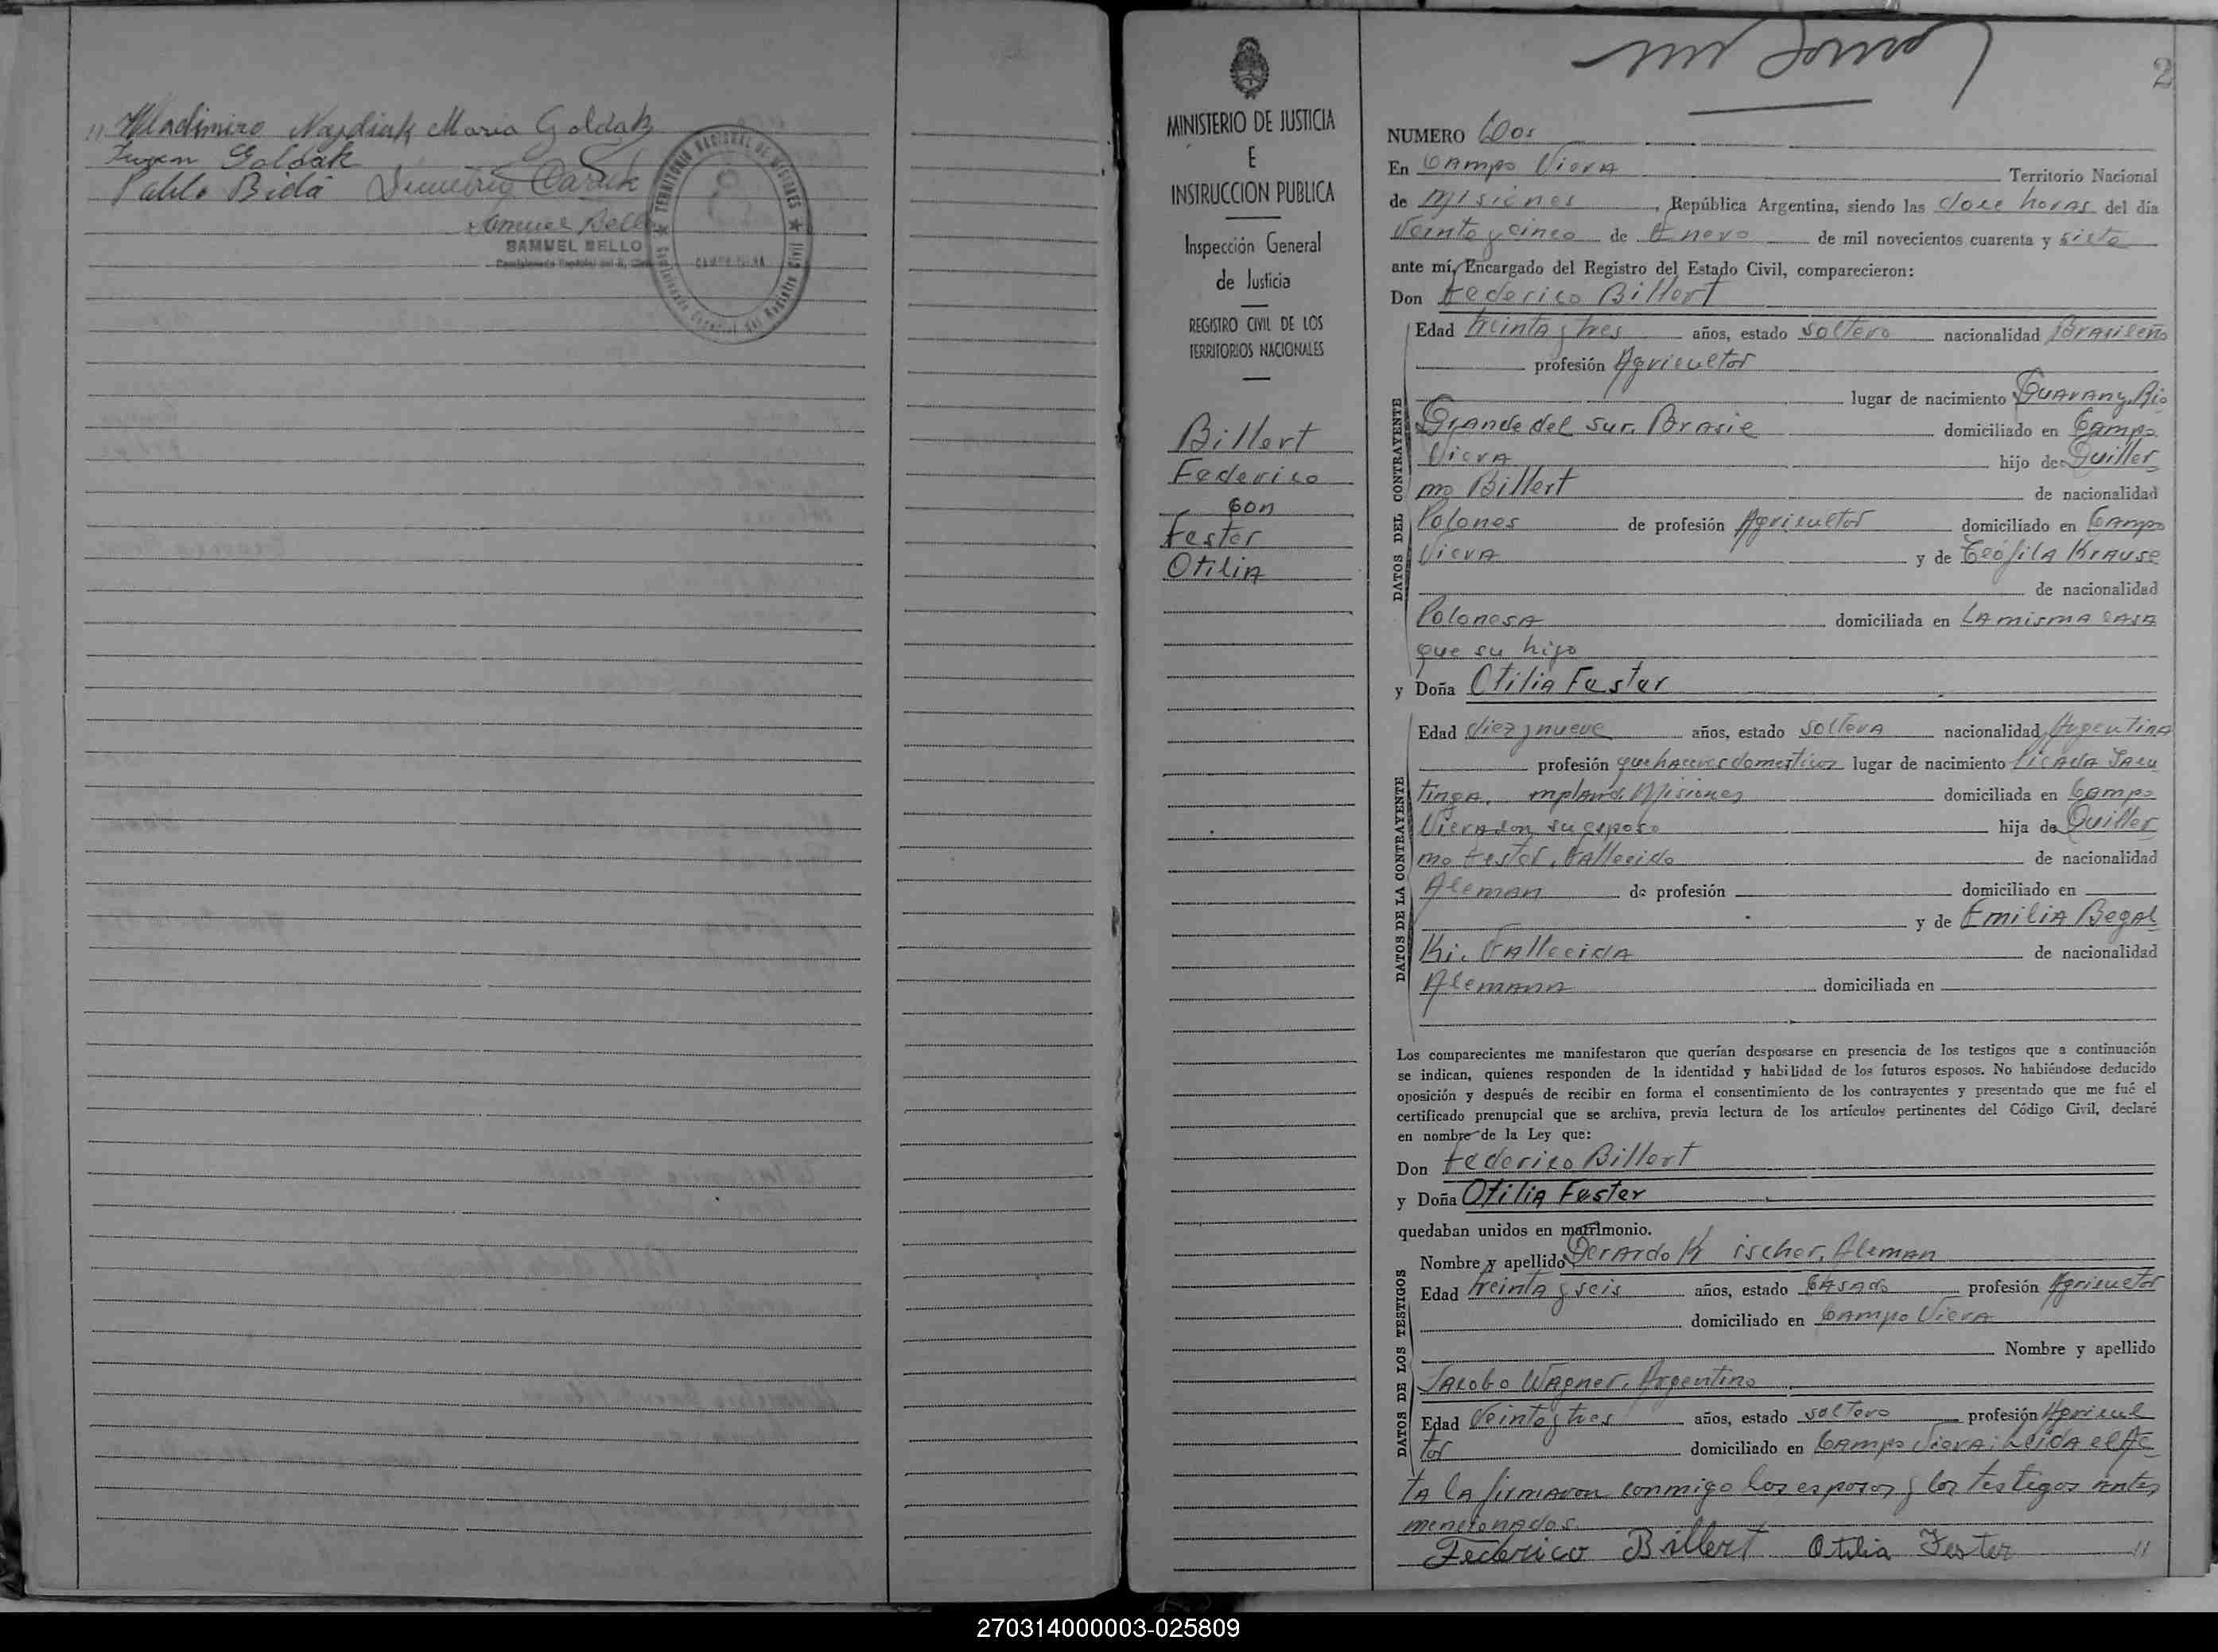 " Wladimiro Nazdiak Maria Goldak
Goldak
Pablo Bidá Demetrio
Samuel Bello
SAMUEL BELLO
TERRITORIO NACIONAL DE MISIONES
CAMPO VIERA
Registro Civil
MINISTERIO DE JUSTICIA
E
INSTRUCCION PUBLICA
Inspección General
de Justicia
REGISTRO CIVIL DE LOS
TERRITORIOS NACIONALES
Billert
Federico
con
Fester
Otilia
2
NUMERO Dos
En Campo Viera Territorio Nacional
de Misiones, República Argentina, siendo las doce horas del día
Veinte y cinco de Enero de mil novecientos cuarenta y siete
ante mí, Encargado del Registro del Estado Civil, comparecieron:
Don Federico Billert
DATOS DEL CONTRAYENTE
Edad treinta y tres años, estado soltero nacionalidad Brasileño
profesión Agricultor
lugar de nacimiento Guarany, Rio
Grande del Sur. Brasil domiciliado en Campo
Viera hijo de Guiller
mo Billert de nacionalidad
Polones de profesión Agricultor domiciliado en Campo
Viera y de Teófila Krause
de nacionalidad
Polonesa domiciliada en La misma casa
que su hijo
y Doña Otilia Fester
DATOS DE LA CONTRAYENTE
Edad diez y nueve años, estado soltera nacionalidad Argentina
profesión quehaceres domesticos lugar de nacimiento Picada Sacu
tinga. Misiones domiciliada en Campo
Viera con su esposo hija de Guiller
mo Fester, Fallecido de nacionalidad
Aleman de profesión domiciliado en
y de Emilia Begal
ki. Fallecida de nacionalidad
Alemana domiciliada en
Los comparecientes me manifestaron que querían desposarse en presencia de los testigos que a continuación
se indican, quienes responden de la identidad y habilidad de los futuros esposos. No habiéndose deducido
oposición y después de recibir en forma el consentimiento de los contrayentes y presentado que me fué el
certificado prenupcial que se archiva, previa lectura de los artículos pertinentes del Código Civil, declaré
en nombre de la Ley que:
Don Federico Billert
y Doña Otilia Fester
quedaban unidos en matrimonio.
DATOS DE LOS TESTIGOS
Nombre y apellido Gerardo K ischer, Aleman
Edad treinta y seis años, estado casado profesión Agricultor
domiciliado en Campo Viera
Nombre y apellido
Jacobo Wagner. Argentino
Edad Veinte y tres años, estado soltero profesión Agricul
tor domiciliado en Campo Viera: Leida el Ac
ta la firmaron conmigo los esposos y los testigos antes
mencionados.
Federico Billert Otilia Fester "
270314000003-025809